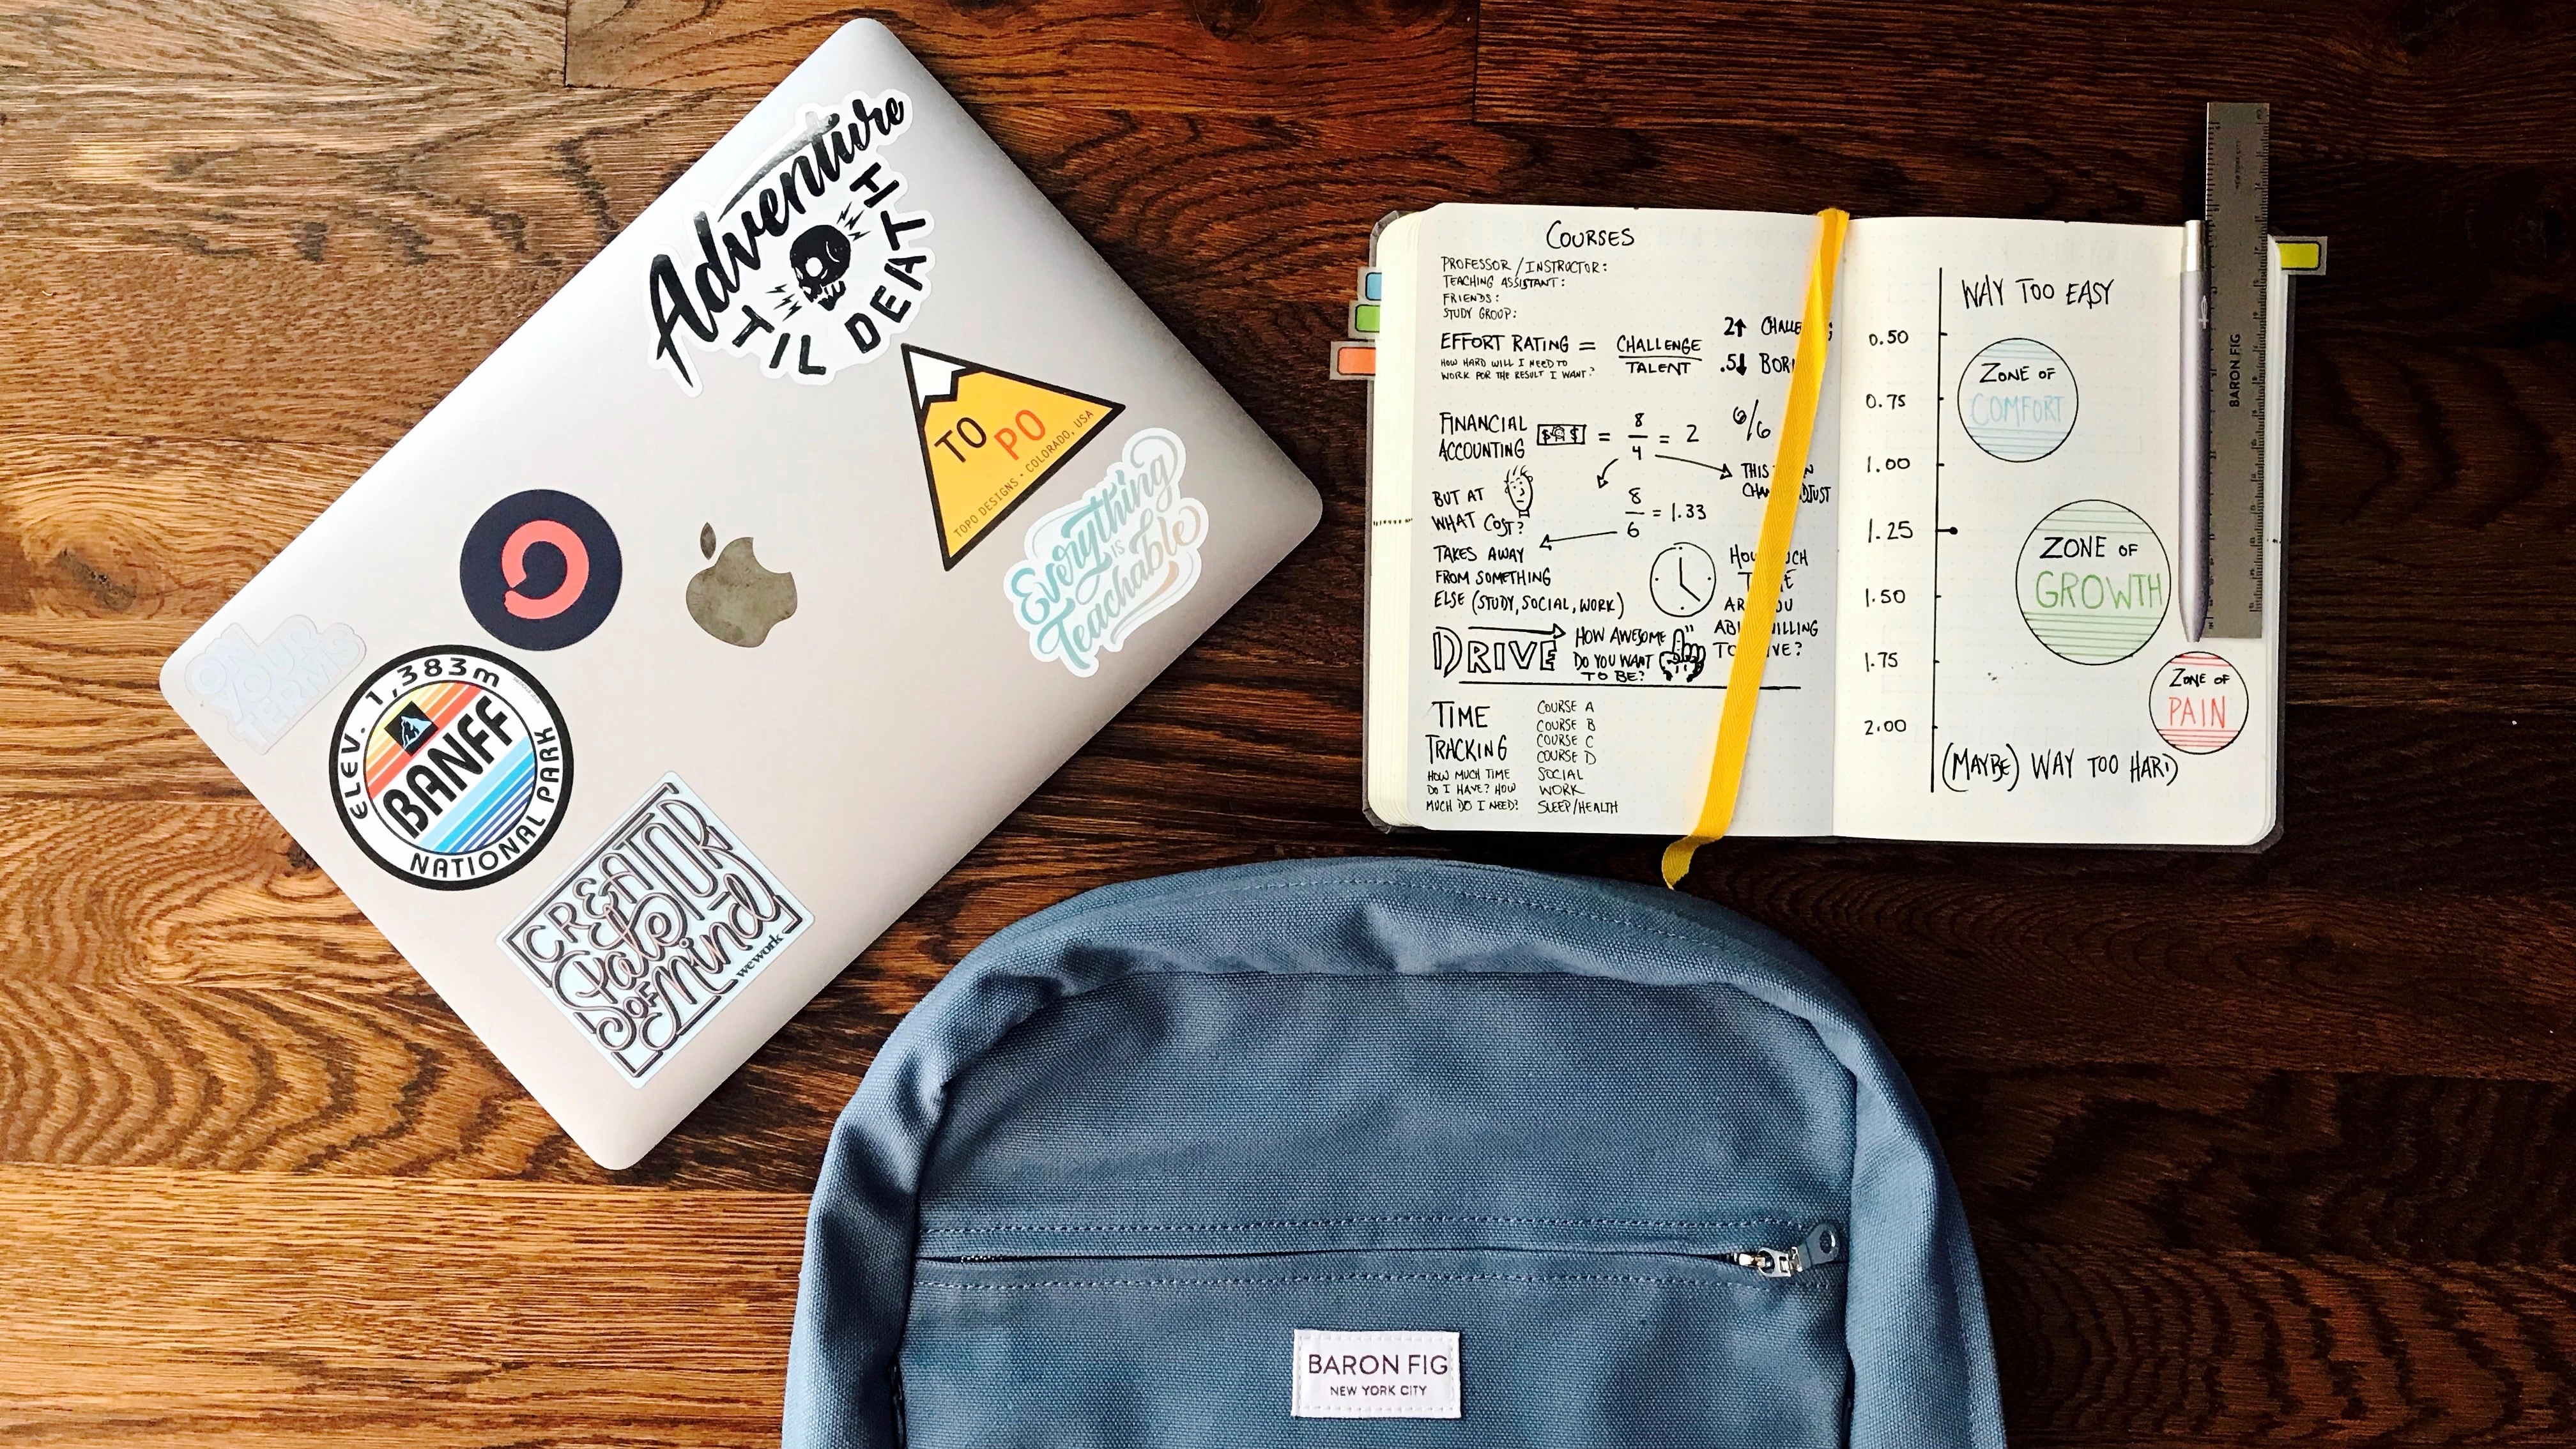 Adventure
TIL DEATH
TO PO
TOPO DESIGNS · COLORADO, USA
Everything
IS
Teachable
ON
YOUR
TERMS
ELEV. 1,383m
BANFF
NATIONAL PARK
CREATOR
State
OF
Mind
wework
COURSES
PROFESSOR / INSTRUCTOR:
TEACHING ASSISTANT:
FRIENDS:
STUDY GROUP:
EFFORT RATING = CHALLENGE
TALENT
HOW HARD WILL I NEED TO
WORK FOR THE RESULT I WANT?
2↑
.5↓
FINANCIAL
ACCOUNTING
$ $ = 8/4 = 2
6/6
THIS
BUT AT
WHAT COST?
8/6 = 1.33
TAKES AWAY
FROM SOMETHING
ELSE (STUDY, SOCIAL, WORK)
DRIVE
HOW AWESOME
DO YOU WANT
TO BE?
TIME
TRACKING
HOW MUCH TIME
DO I HAVE? HOW
MUCH DO I NEED?
COURSE A
COURSE B
COURSE C
COURSE D
SOCIAL
WORK
SLEEP/HEALTH
WAY TOO EASY
0.50
0.75
1.00
1.25
1.50
1.75
2.00
ZONE OF
COMFORT
ZONE OF
GROWTH
ZONE OF
PAIN
(MAYBE) WAY TOO HARD
BARON FIG
NEW YORK CITY
BARON FIG
NEW YORK CITY